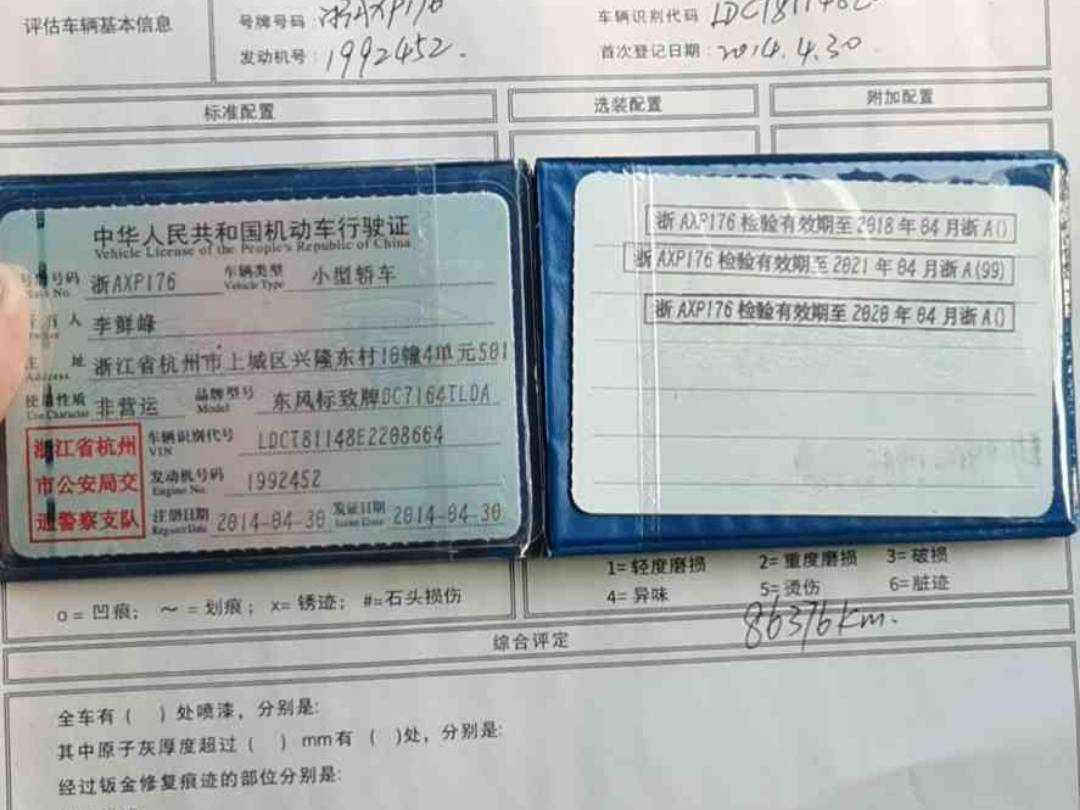 评估车辆基本信息
号牌号码: 浙AXP176
车辆识别代码
发动机号: 1992452.
首次登记日期: 2014.4.30
标准配置
选装配置
附加配置
中华人民共和国机动车行驶证
Vehicle License of the People's Republic of China
号牌号码 浙AXP176 车辆类型 小型轿车
Plate No. Vehicle Type
所有人 李鲜峰
住址 浙江省杭州市上城区兴隆东村10幢4单元501
Address
使用性质 非营运 品牌型号 东风标致牌DC7164TLDA
Use Character Model
浙江省杭州
市公安局交
通警察支队
车辆识别代号 LDCT81148E2208664
VIN
发动机号码 1992452
Engine No.
注册日期 2014-04-30 发证日期 2014-04-30
Register Date Issue Date
浙AXP176检验有效期至2018年04月浙A()
浙AXP176检验有效期至2021年04月浙A(99)
浙AXP176检验有效期至2020年04月浙A()
o=凹痕; ～=划痕; x=锈迹; #=石头损伤
1=轻度磨损 2=重度磨损 3=破损
4=异味 5=烫伤 6=脏迹
86376km.
综合评定
全车有( )处喷漆，分别是:
其中原子灰厚度超过( )mm有( )处，分别是:
经过钣金修复痕迹的部位分别是: